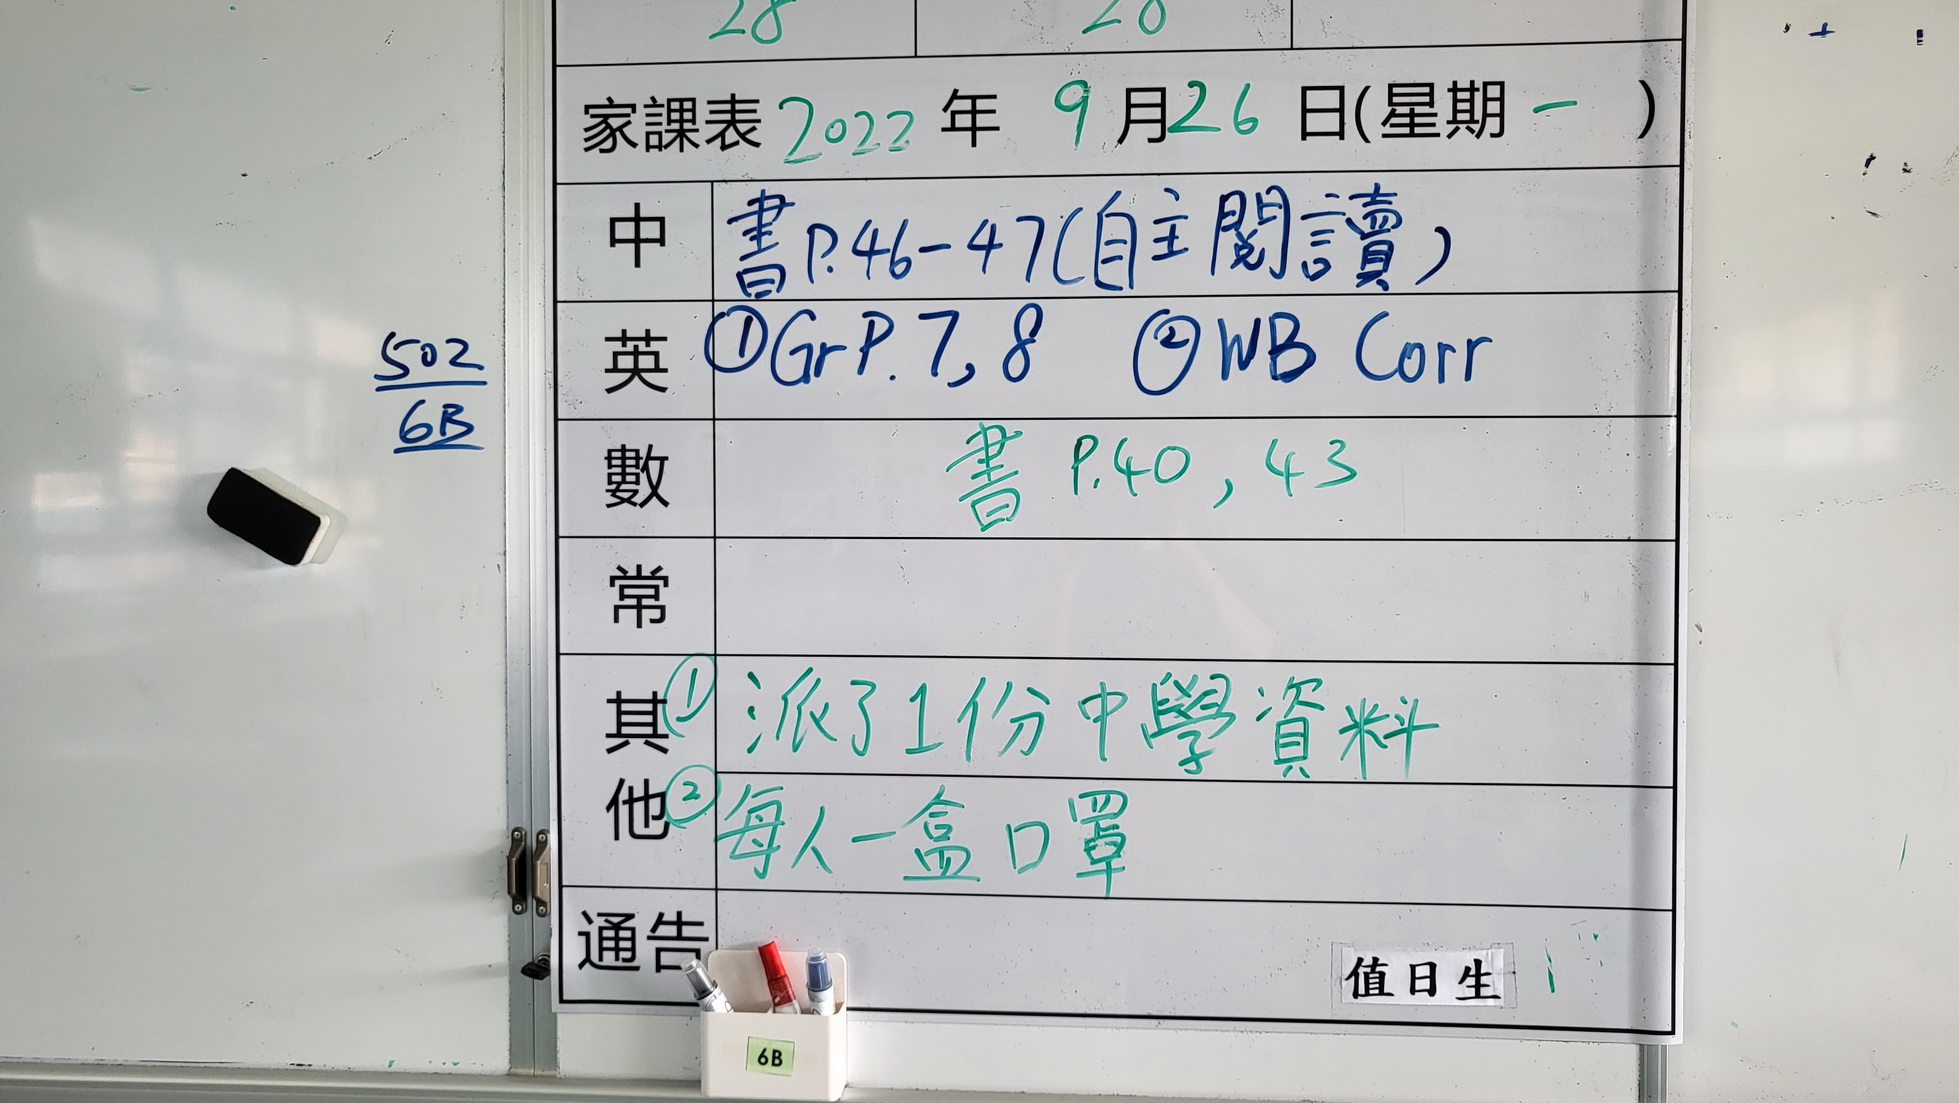 28 28
家課表 2022 年 9 月 26 日(星期 一 )
中 書 P.46-47(自主閱讀)
英 ①Gr P.7, 8 ②WB Corr
502
6B
數 書 P.40, 43
常
其他 ① 派了1份中學資料
② 每人一盒口罩
通告
值日生 1
6B